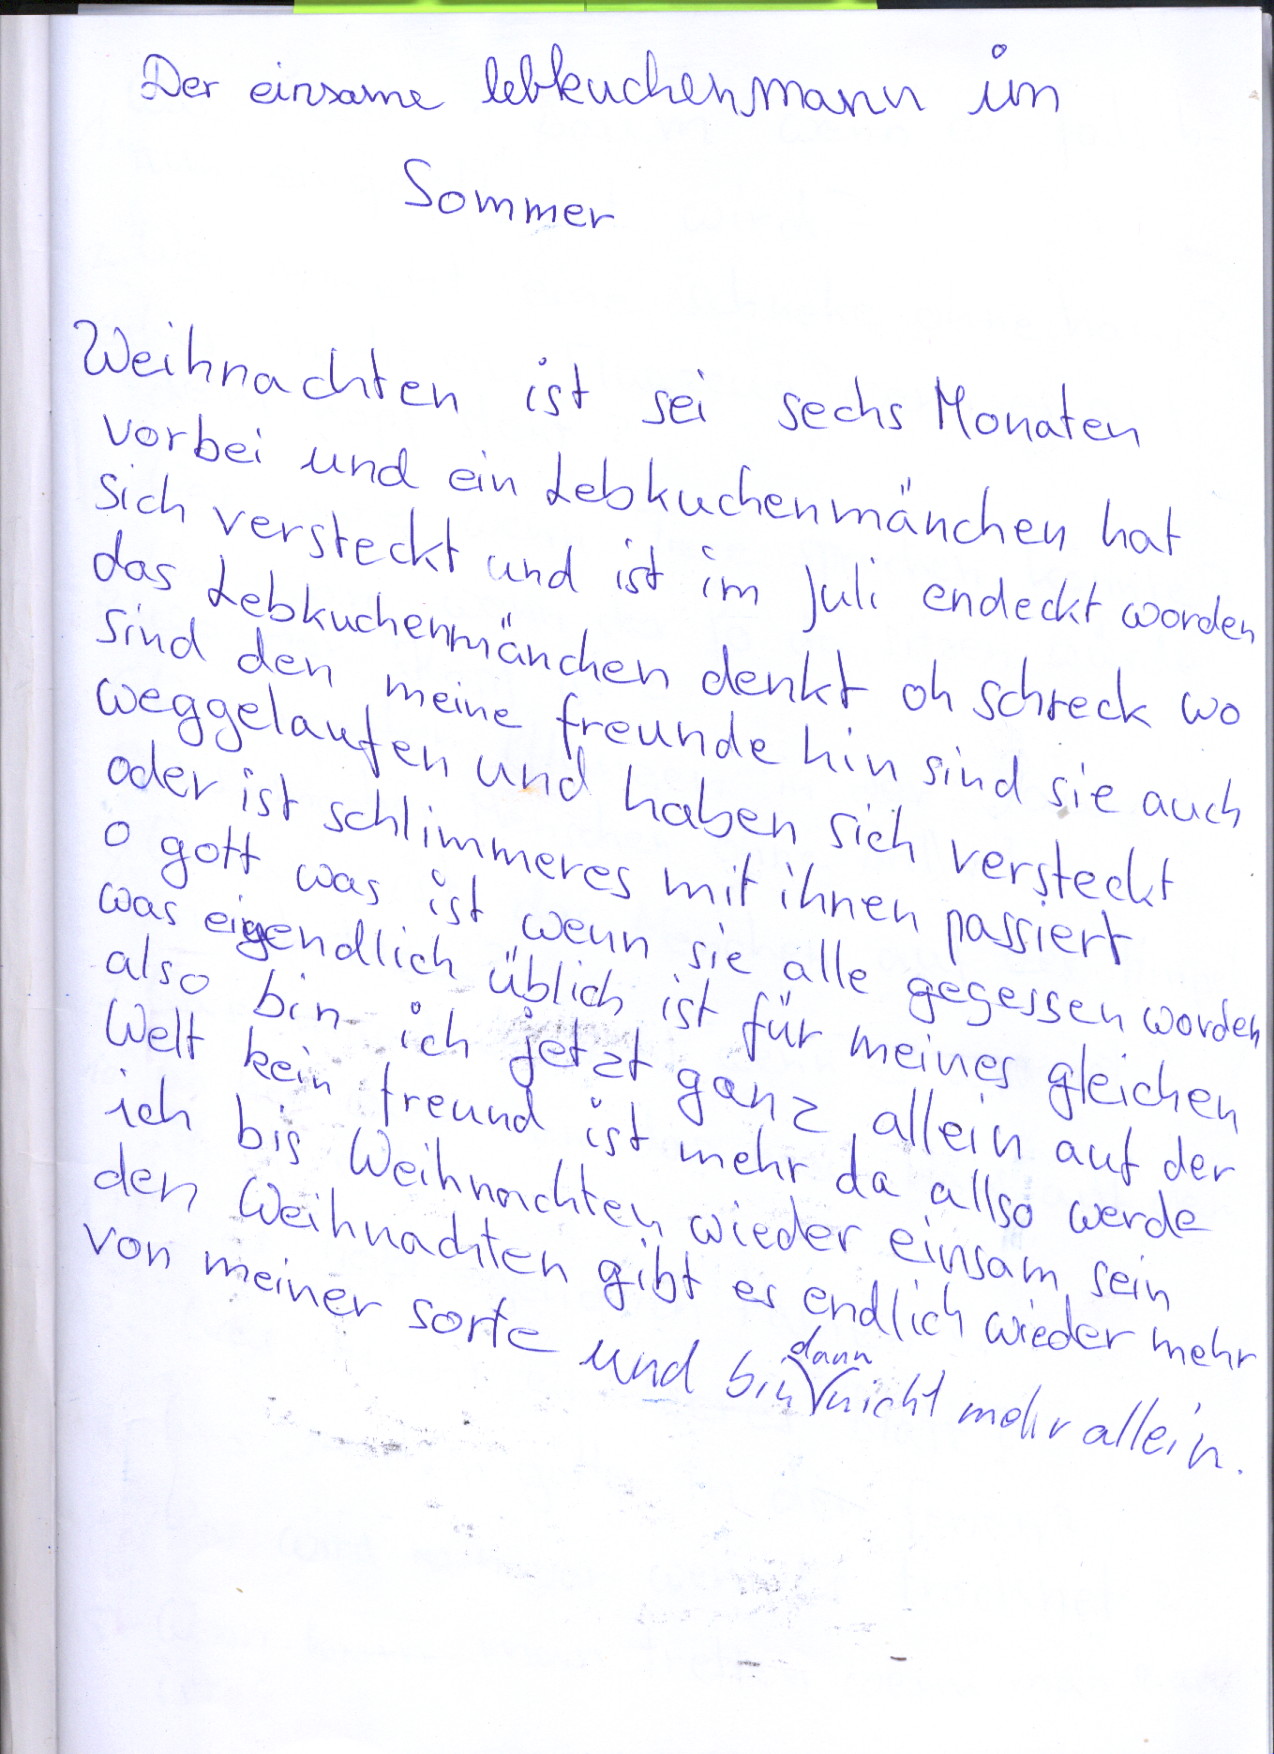 Der einsame lebkuchenmann im
Sommer
Weihnachten ist sei sechs Monaten
vorbei und ein Lebkuchenmänchen hat
sich versteckt und ist im Juli endeckt worden
das Lebkuchenmänchen denkt oh schreck wo
sind den meine freunde hin sind sie auch
weggelaufen und haben sich versteckt
oder ist schlimmeres mit ihnen passiert
o gott was ist wenn sie alle gegessen worden
was eigendlich üblich ist für meines gleichen
also bin ich jetzt ganz allein auf der
Welt kein freund ist mehr da allso werde
ich bis Weihnachten wieder einsam sein
den Weihnachten gibt es endlich wieder mehr
von meiner sorte und bin dann nicht mehr allein.